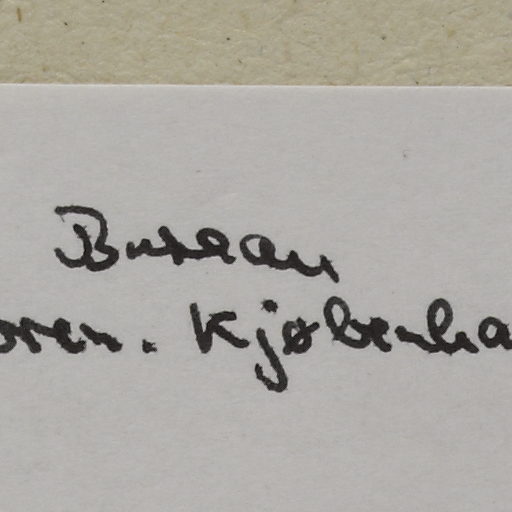 Bureau
oren. Kjøbenha